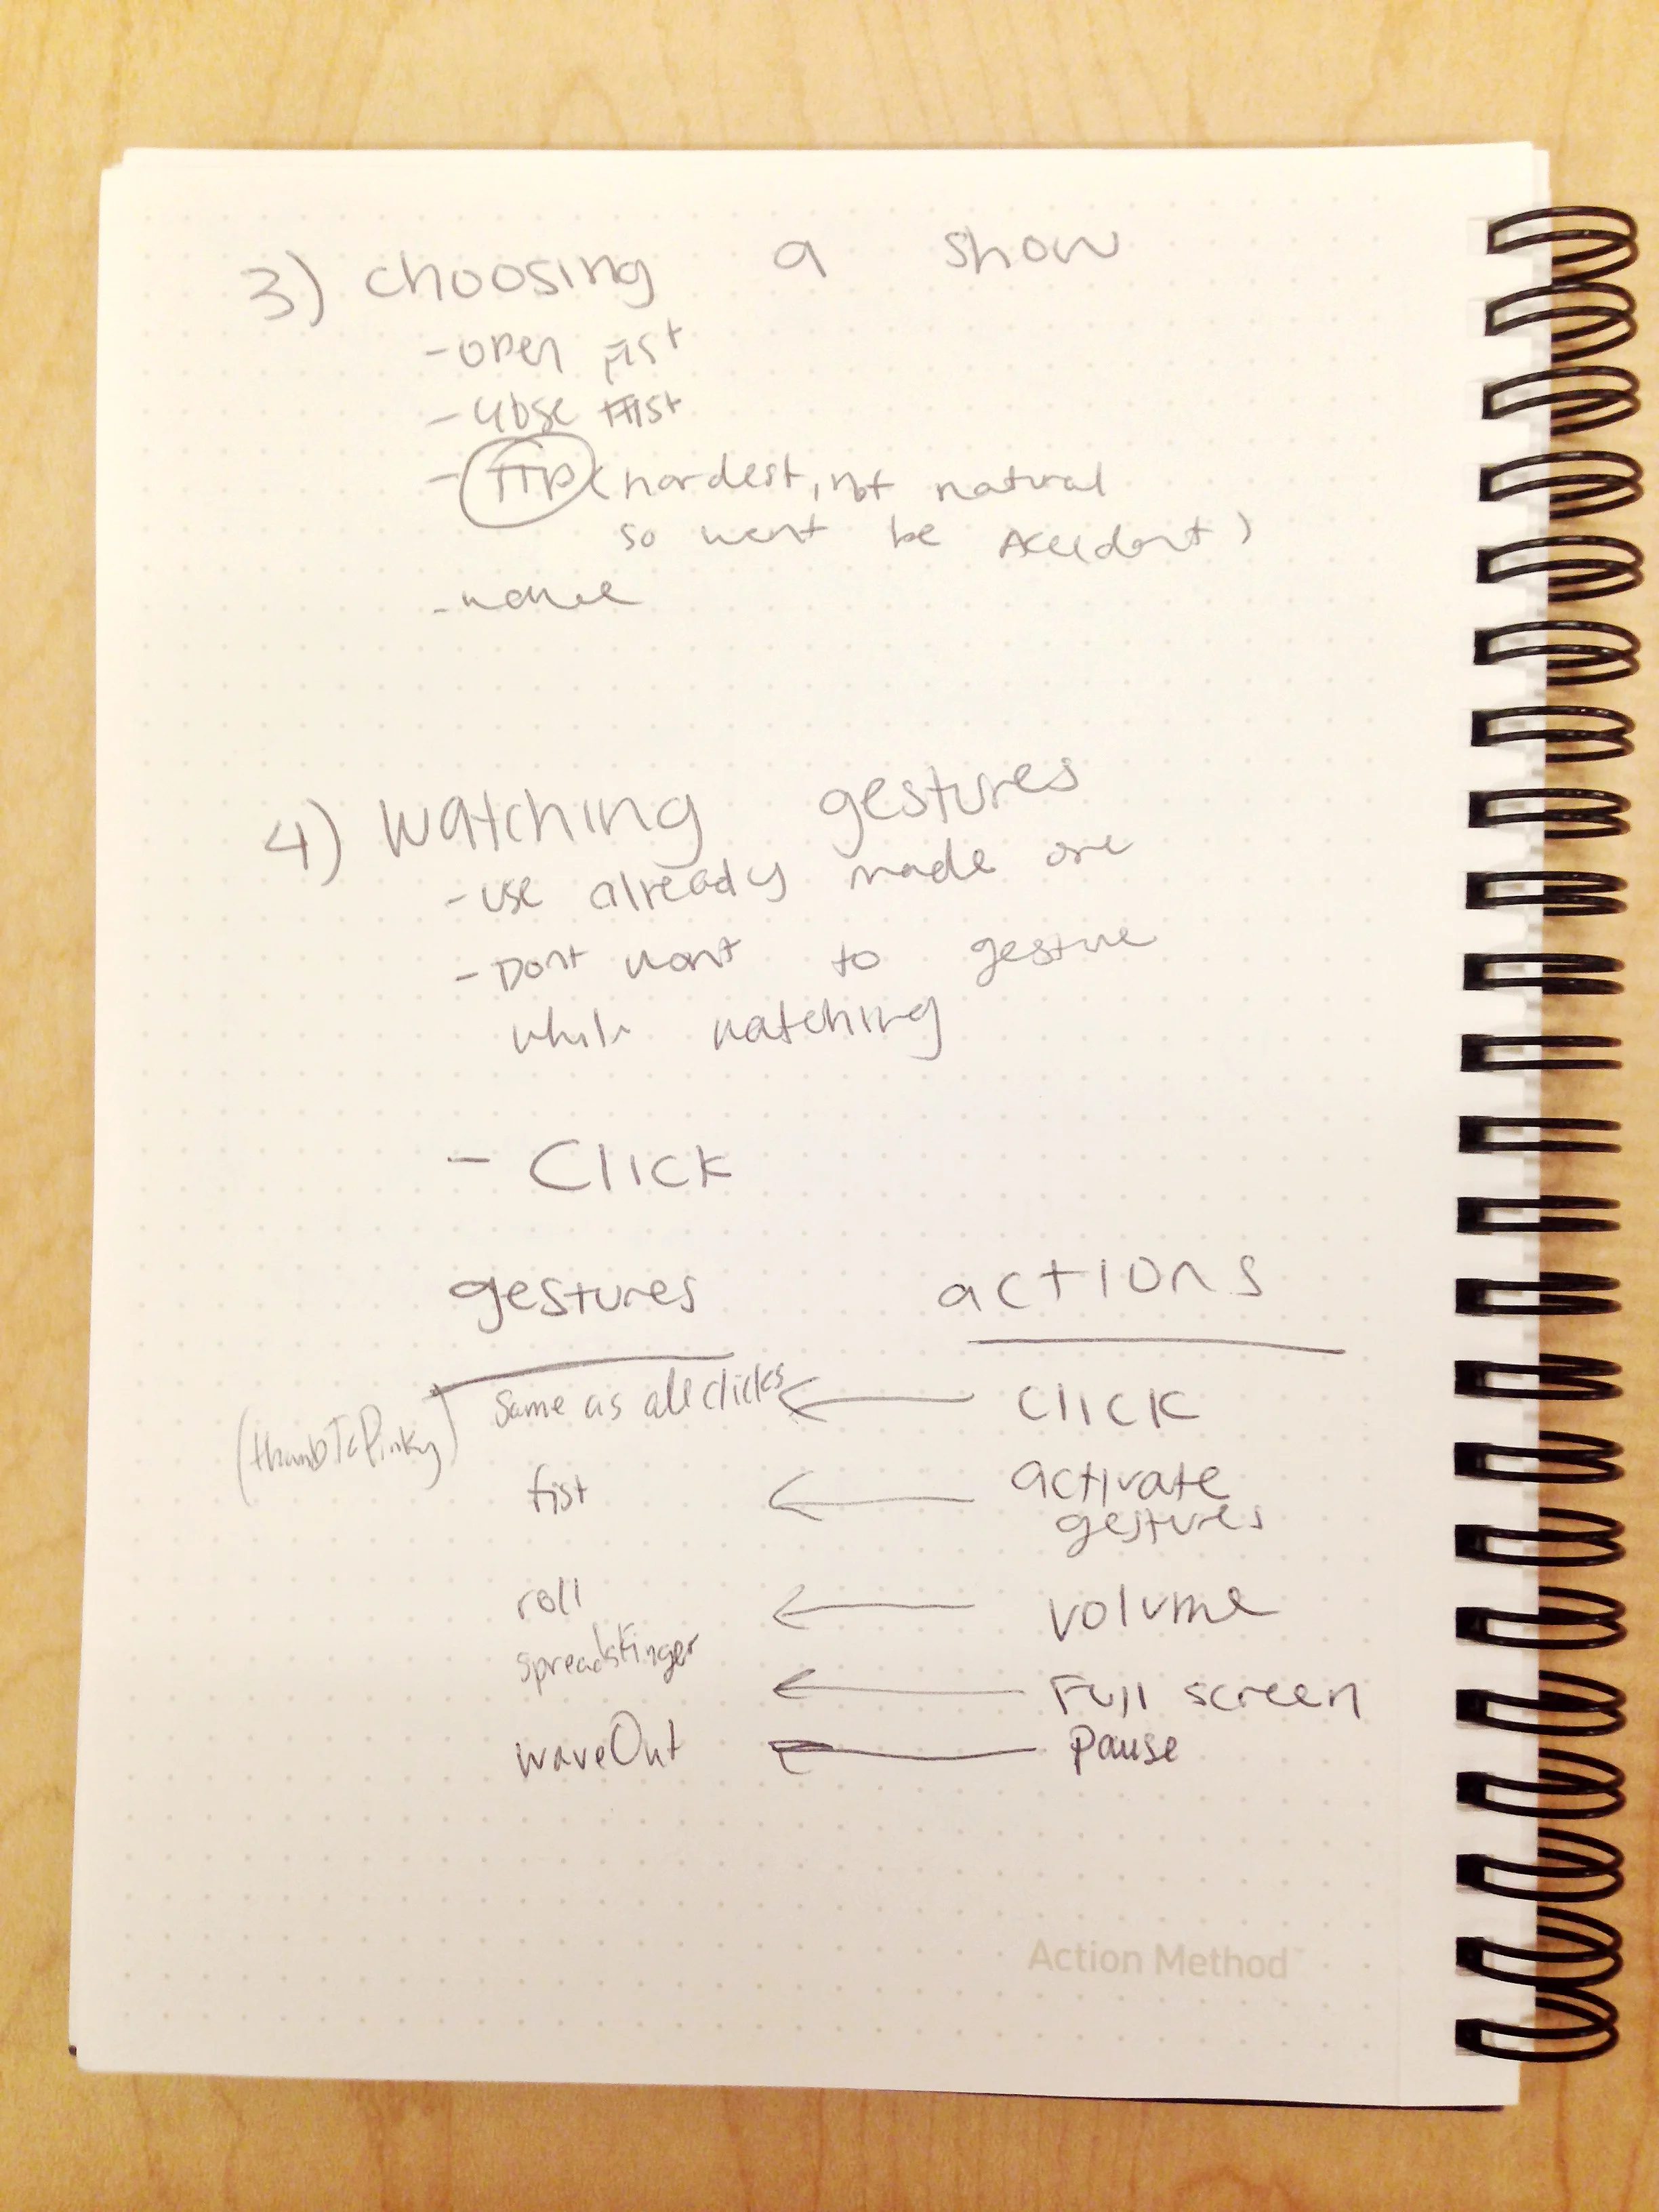 3) choosing a show
- open fist
- close fist
- TTP (hardest, not natural
so wont be Accident)
4) watching gestures
- use already made one
- Dont want to gesture
while watching
- Click
gestures actions
same as all clicks ← click
(thumbToPinky)
fist ← activate
gestures
roll ← volume
spreadsFinger ← Full screen
waveOut ← pause
Action Method